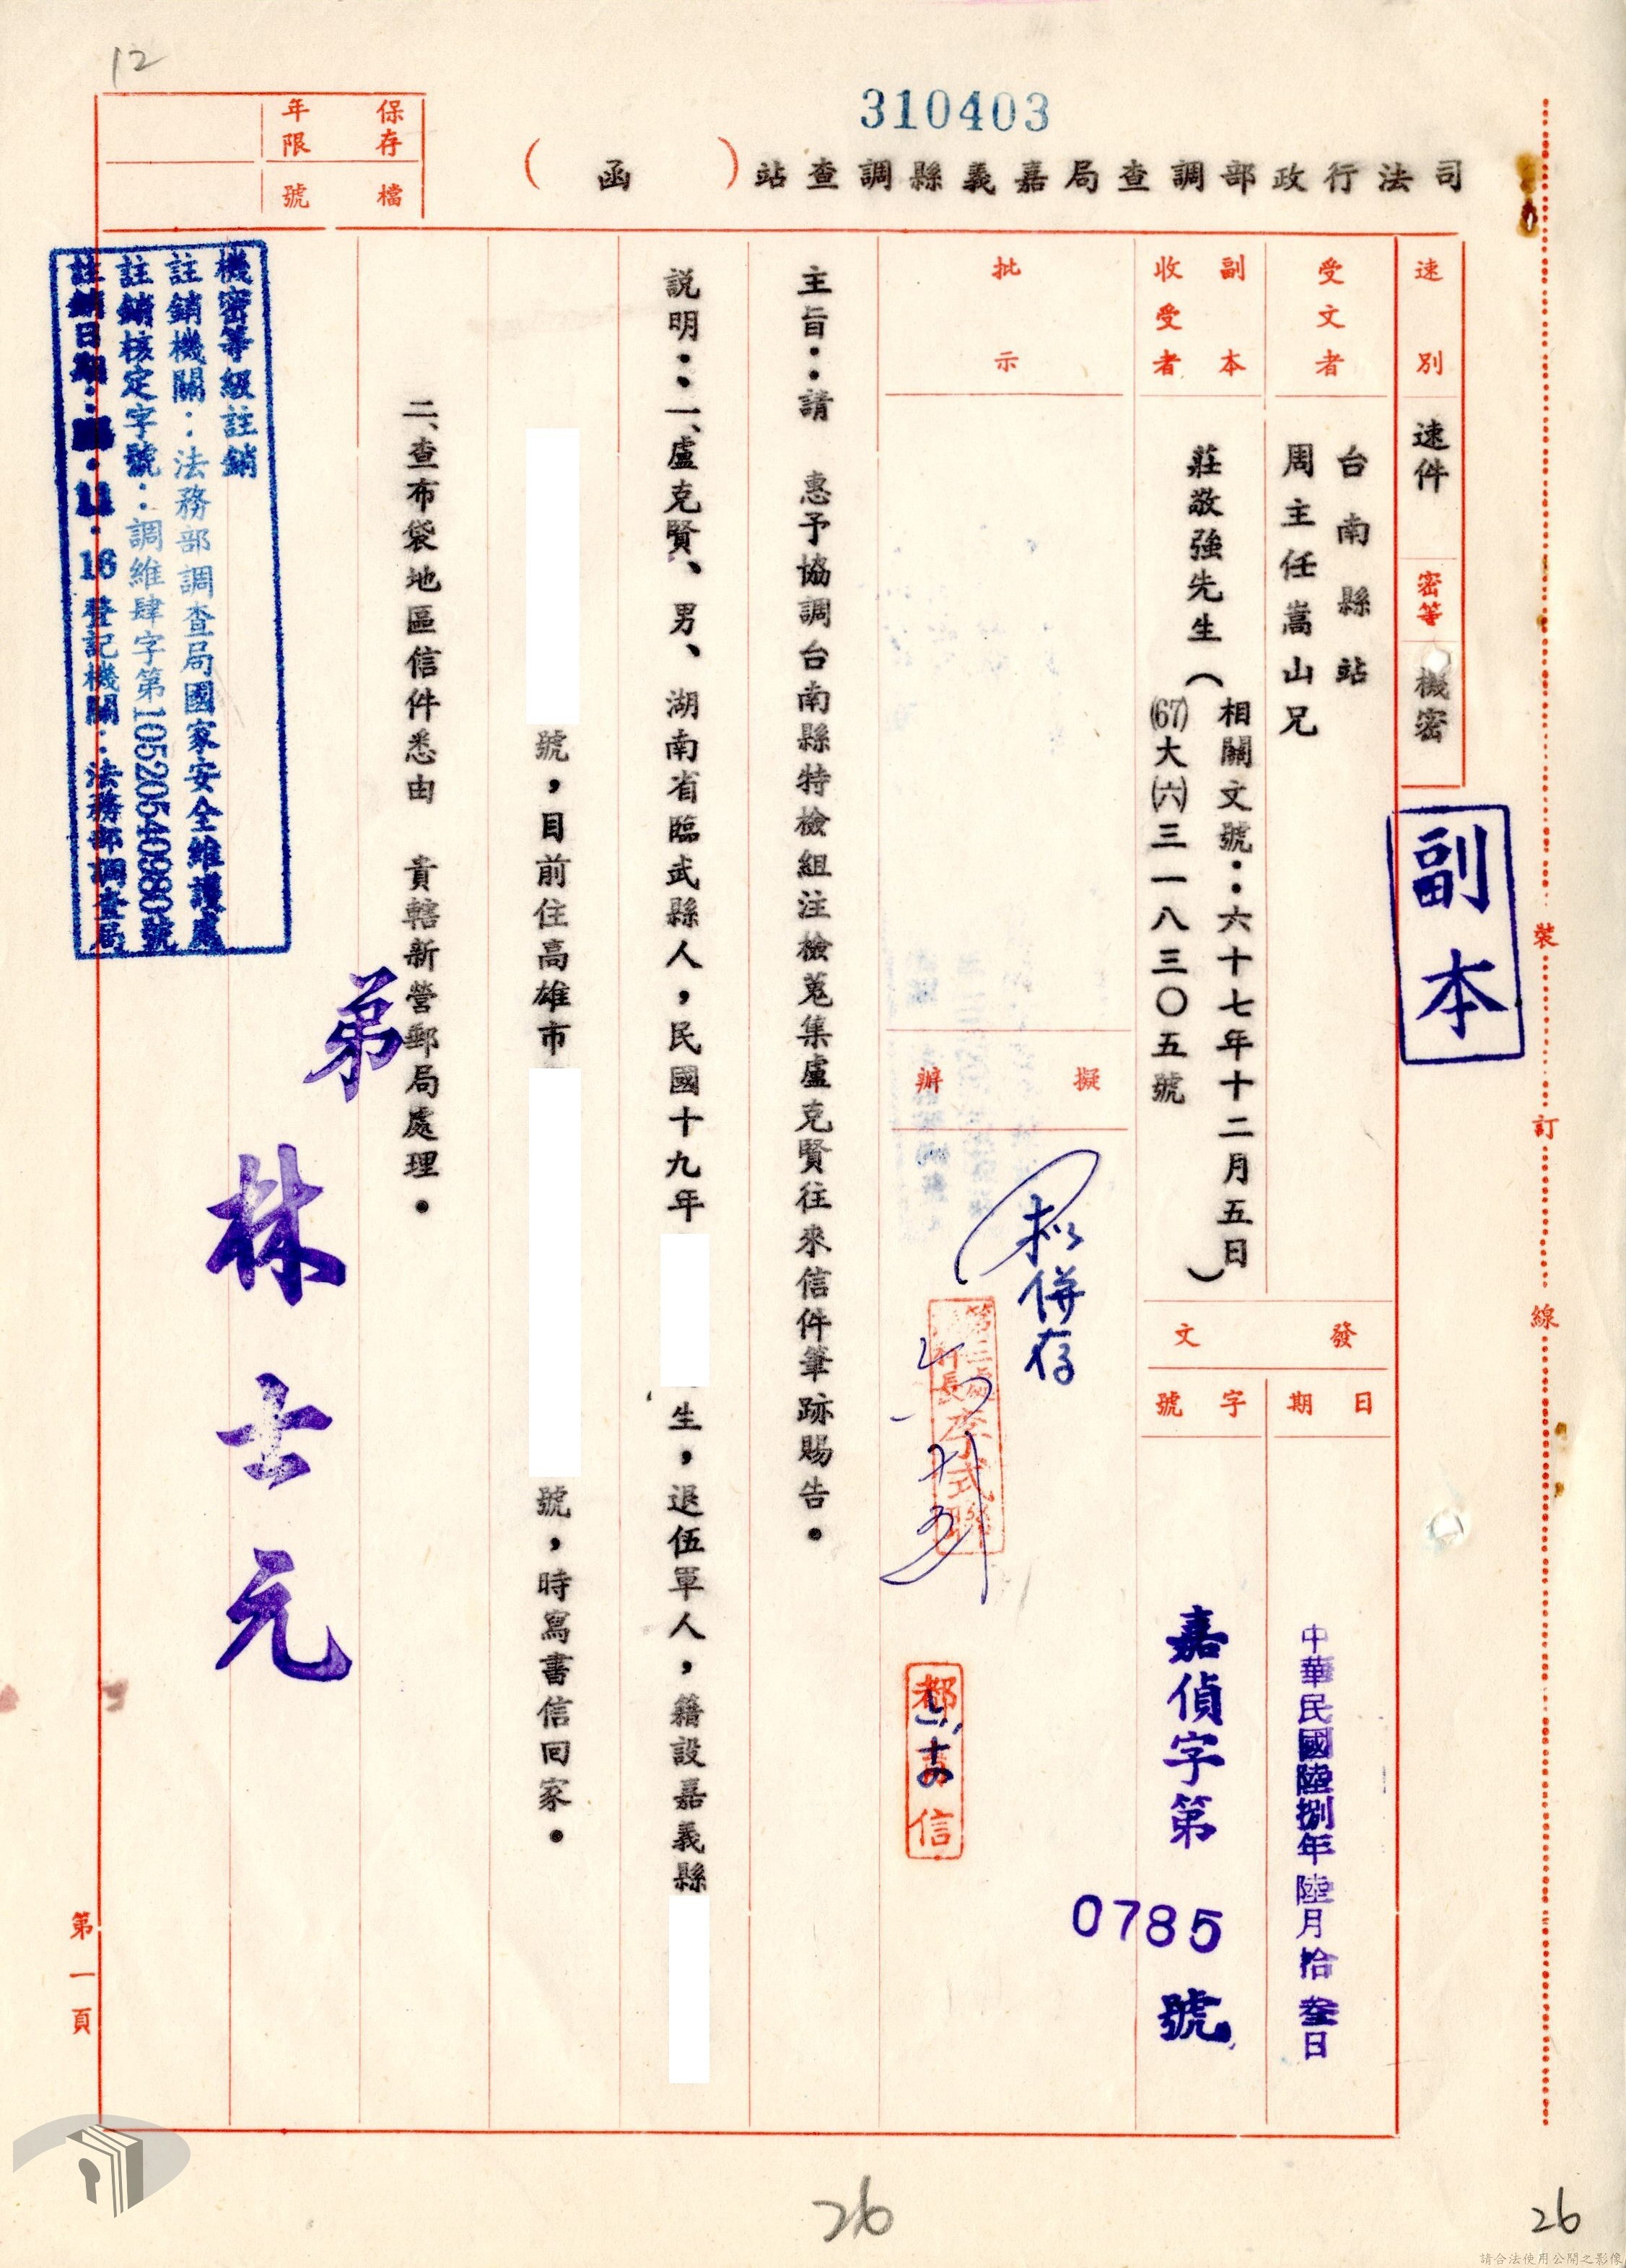 12
310403
司法行政部調查局嘉義縣調查站（函）
保存年限
檔號
速別
速件
密等
機密
副本
受文者
台南縣站
周主任嵩山兄
副本收受者
莊敬強先生（相關文號：六十七年十二月五日
(67)大(六)三一八三〇五號）
發文
日期
中華民國陸捌年陸月拾叁日
字號
嘉偵字第0785號
批示
擬辦
擬併存
主旨：請　惠予協調台南縣特檢組注檢蒐集盧克賢往來信件筆跡賜告。
說明：一、盧克賢、男、湖南省臨武縣人，民國十九年
生，退伍軍人，籍設嘉義縣
號，目前住高雄市
號，時寫書信回家。
二、查布袋地區信件悉由　貴轄新營郵局處理。
弟 林士元
機密等級註銷
註銷機關：法務部調查局國家安全維護處
註銷核定字號：調維肆字第10520540980號
登記機關：法務部調查局
裝
訂
線
第一頁
26
26
請合法使用公開之影像